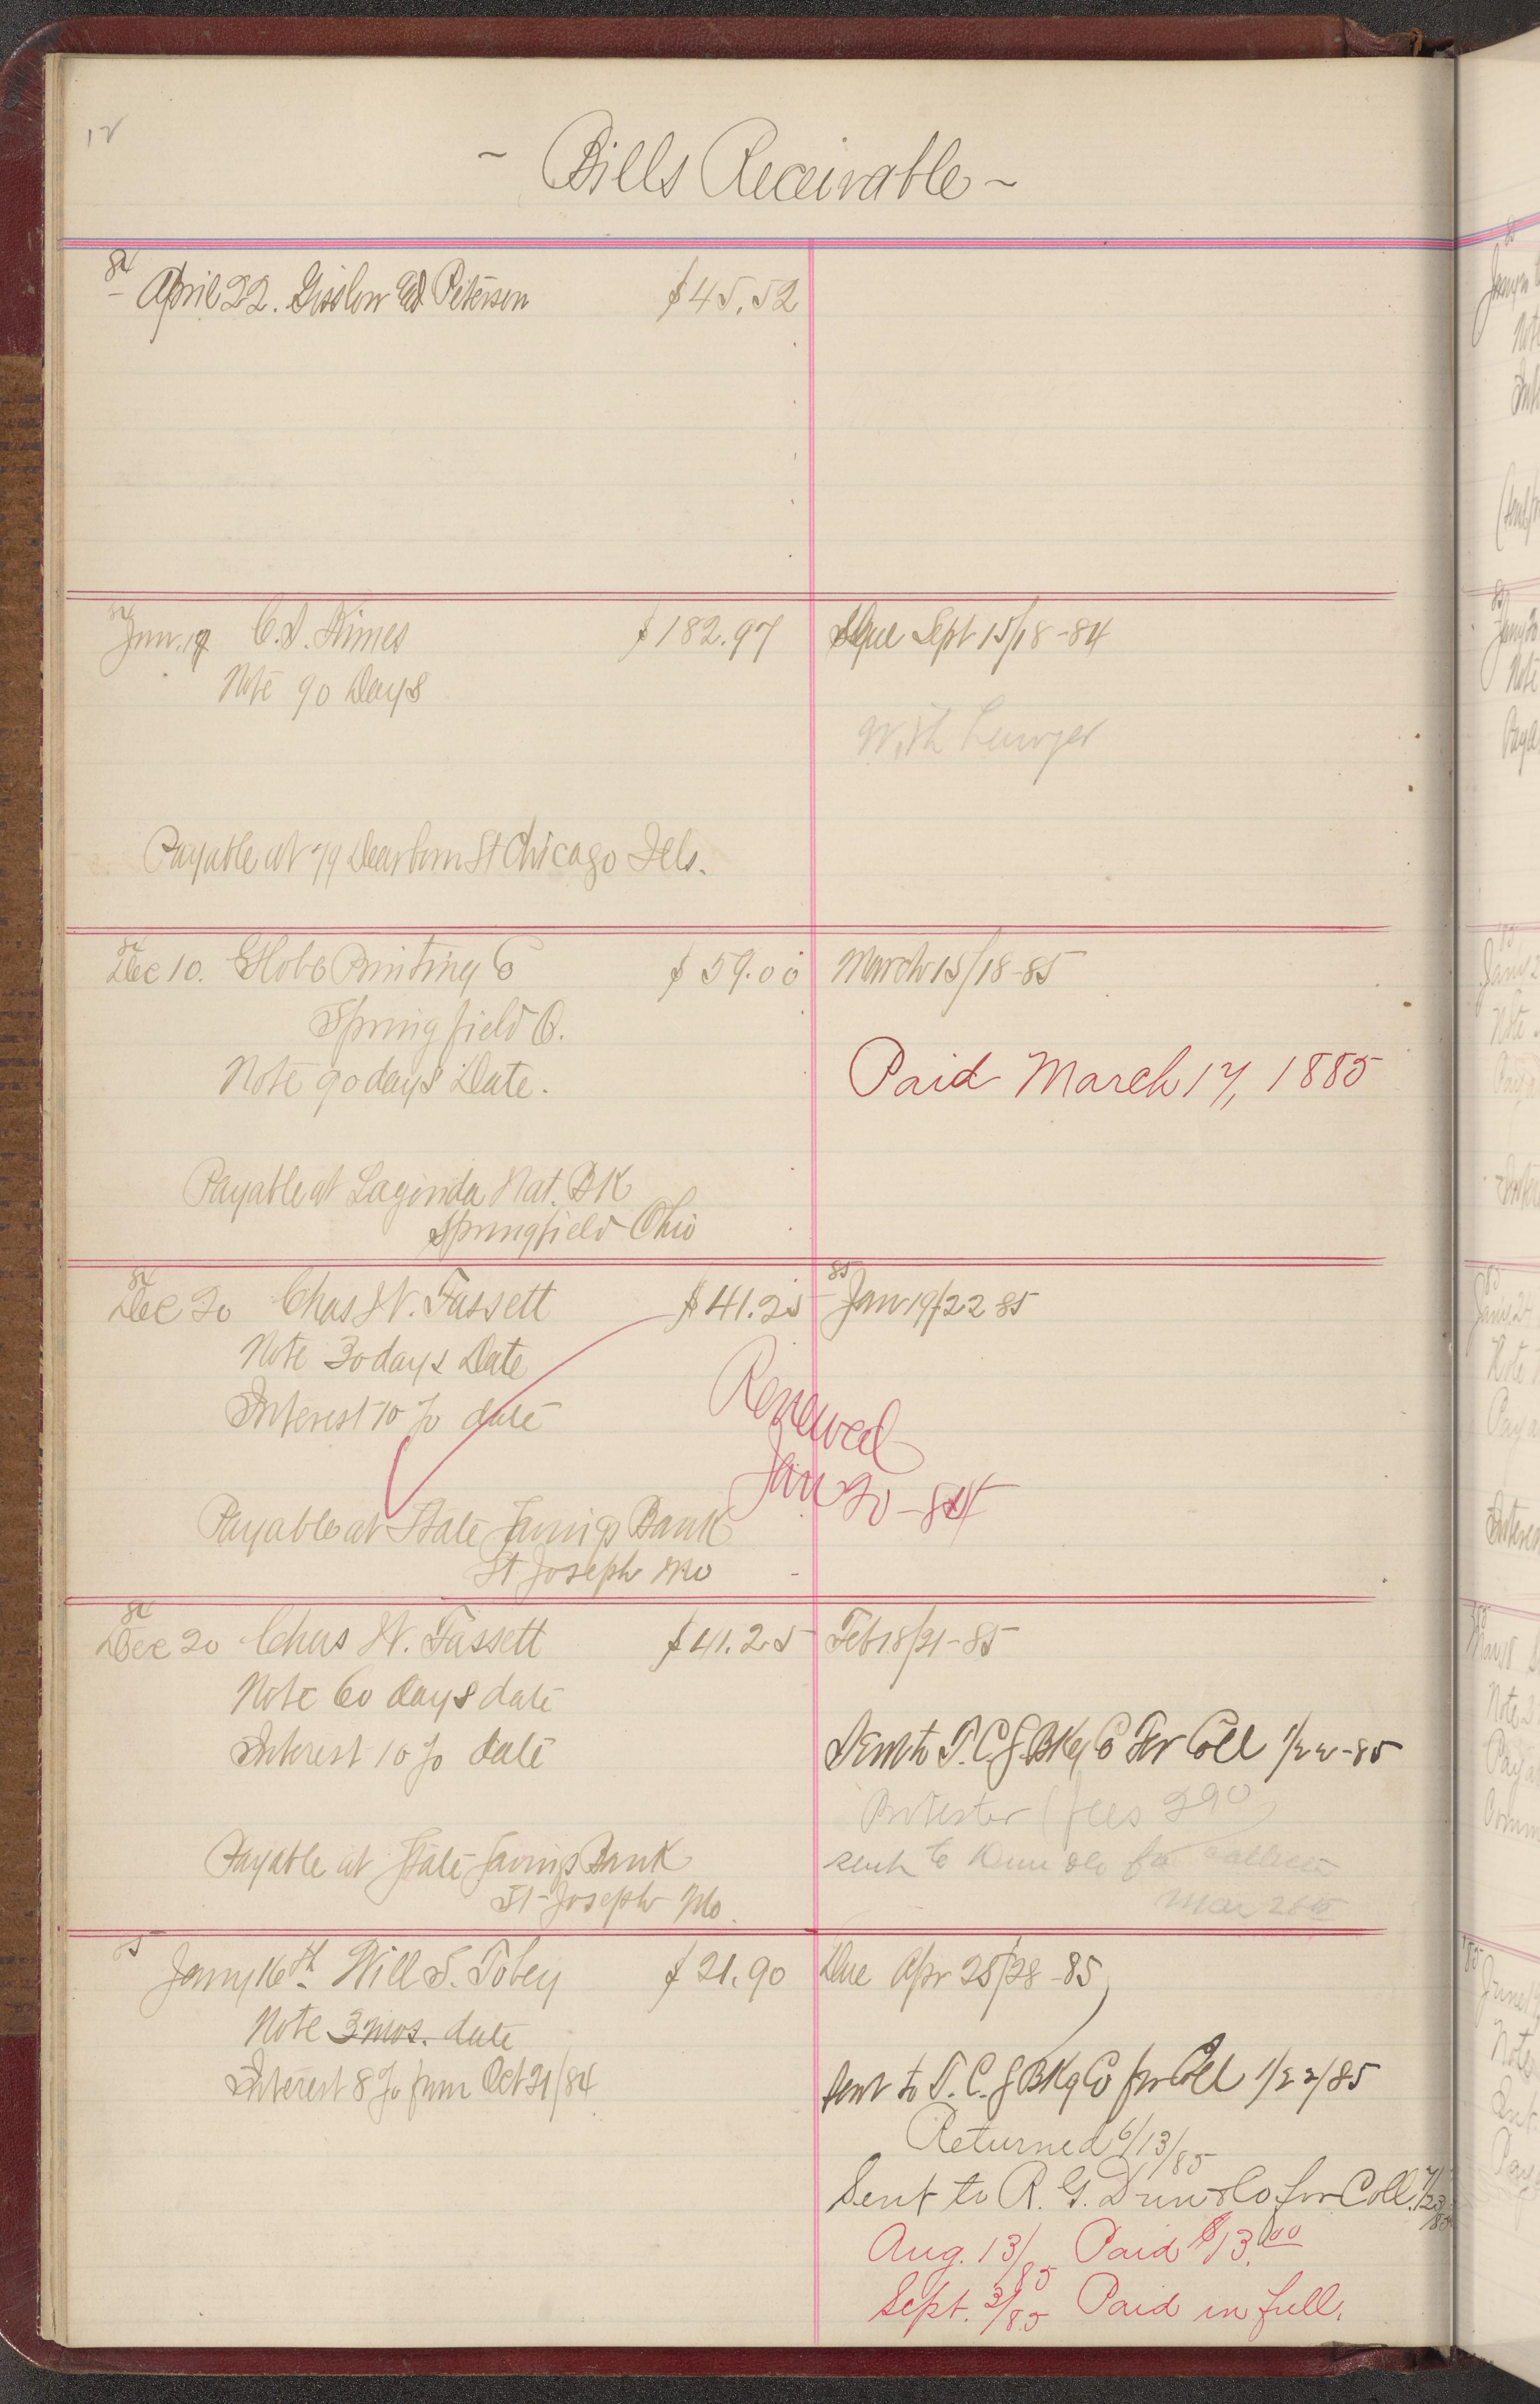 12
- Bills Receivable -
84
April 22. Gisslow Ed Peterson $45.52
84
Jun. 17 C. D. Himes $182.97 Due Sept 15/18-84
Note 90 Days
With Lawyer
Payable at 79 Dearborn St Chicago Ills.
84
Dec 10. Globe Printing Co $59.00 March 15/18-85
Springfield O.
Note 90 days Date. Paid March 17, 1885
Payable at Lagonda Nat. Bk
Springfield Ohio
84 85
Dec 20 Chas W. Fassett $41.25 Jan 19/22 85
Note 30 days Date
Interest 10 % date
Renewed
Jan 20-84
Payable at State Savings Bank
St Joseph Mo
84
Dec 20 Chas W. Fassett $41.25 Feb 18/21-85
Note 60 days date
Interest 10 % date Sent to T. C. & J. Bkg Co For Coll 1/22-85
Protested (fees 290)
Payable at State Savings Bank sent to Dunn & Co for collection
St Joseph Mo. Mar 26th
5
Jany 16th Will S. Tobey $21.90 Due Apr 25/28-85
Note 3 mos. date
Interest 8 % from Oct 21/84 Sent to T. C. & J. Bkg Co for Coll 1/22/85
Returned 6/13/85
Sent to R. G. Dun & Co for Coll. 7/23/85
Aug. 13/85 Paid $13.00
Sept. 3/85 Paid in full.